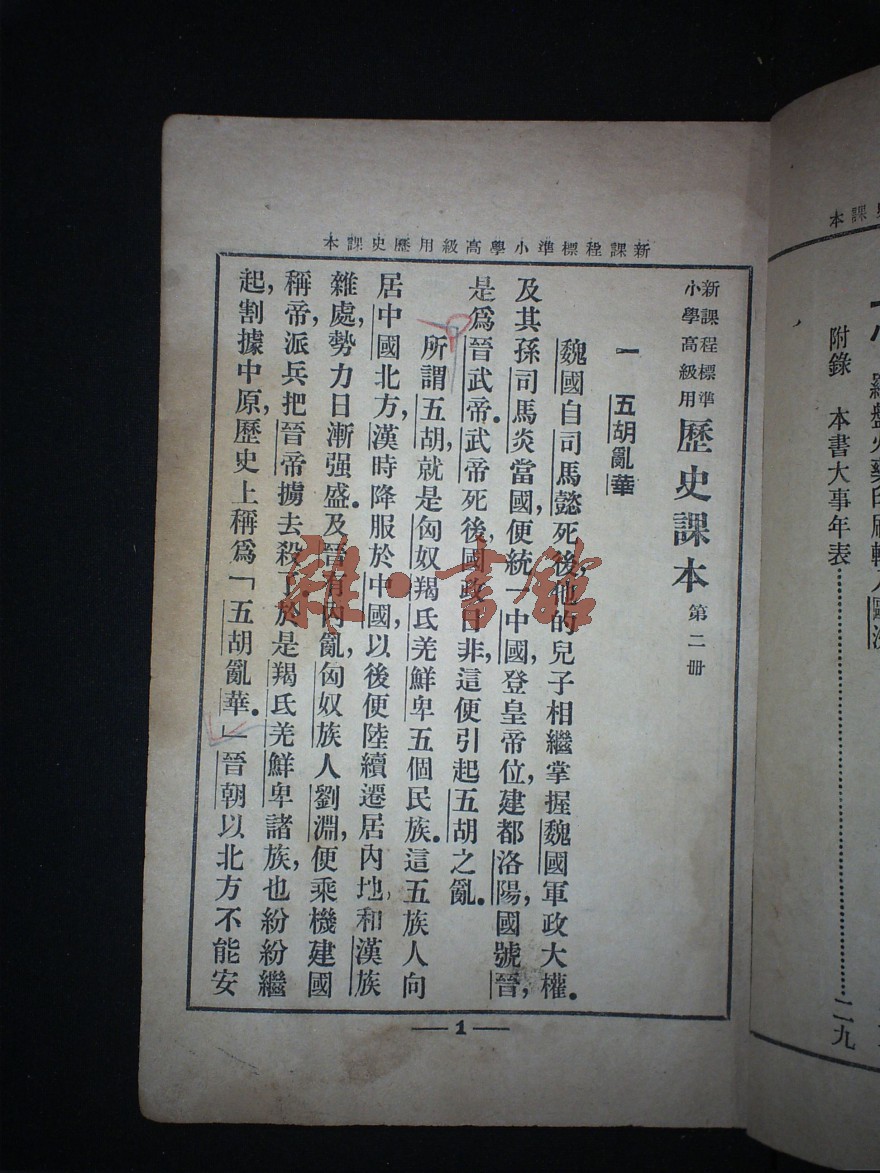 新課程標準小學高級用歷史課本
新課程標準
小學高級用
歷史課本 第二册
一 五胡亂華
魏國自司馬懿死後,他的兒子相繼掌握魏國軍政大權.
及其孫司馬炎當國,便統一中國,登皇帝位,建都洛陽,國號晉,
是爲晉武帝.武帝死後,國政日非,這便引起五胡之亂.
所謂五胡,就是匈奴羯氐羌鮮卑五個民族.這五族人向
居中國北方,漢時降服於中國,以後便陸續遷居內地,和漢族
雜處,勢力日漸强盛.及晉有內亂,匈奴族人劉淵,便乘機建國
稱帝,派兵把晉帝擄去殺了.於是羯氐羌鮮卑諸族,也紛紛繼
起,割據中原,歷史上稱爲「五胡亂華.」晉朝以北方不能安
—1—
附錄 本書大事年表……二九
雜·書館